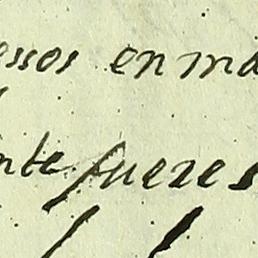 essos en ma
nte fueres